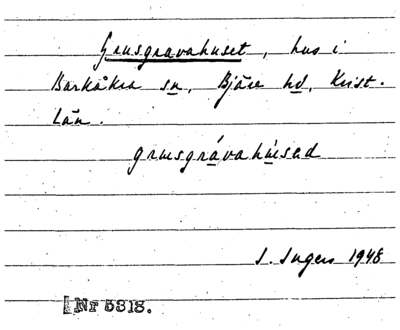 Grusgravahuset, hus i
Barkåkra sn, Bjäre hd, Krist.
län.
grusgrávahúsed
I. Ingers 1948
Nr 5318.